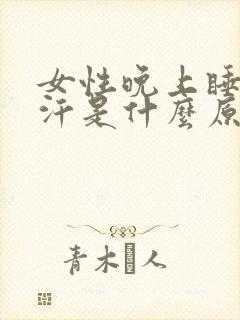 女性晚上睡
汗是什麼原
青木 人